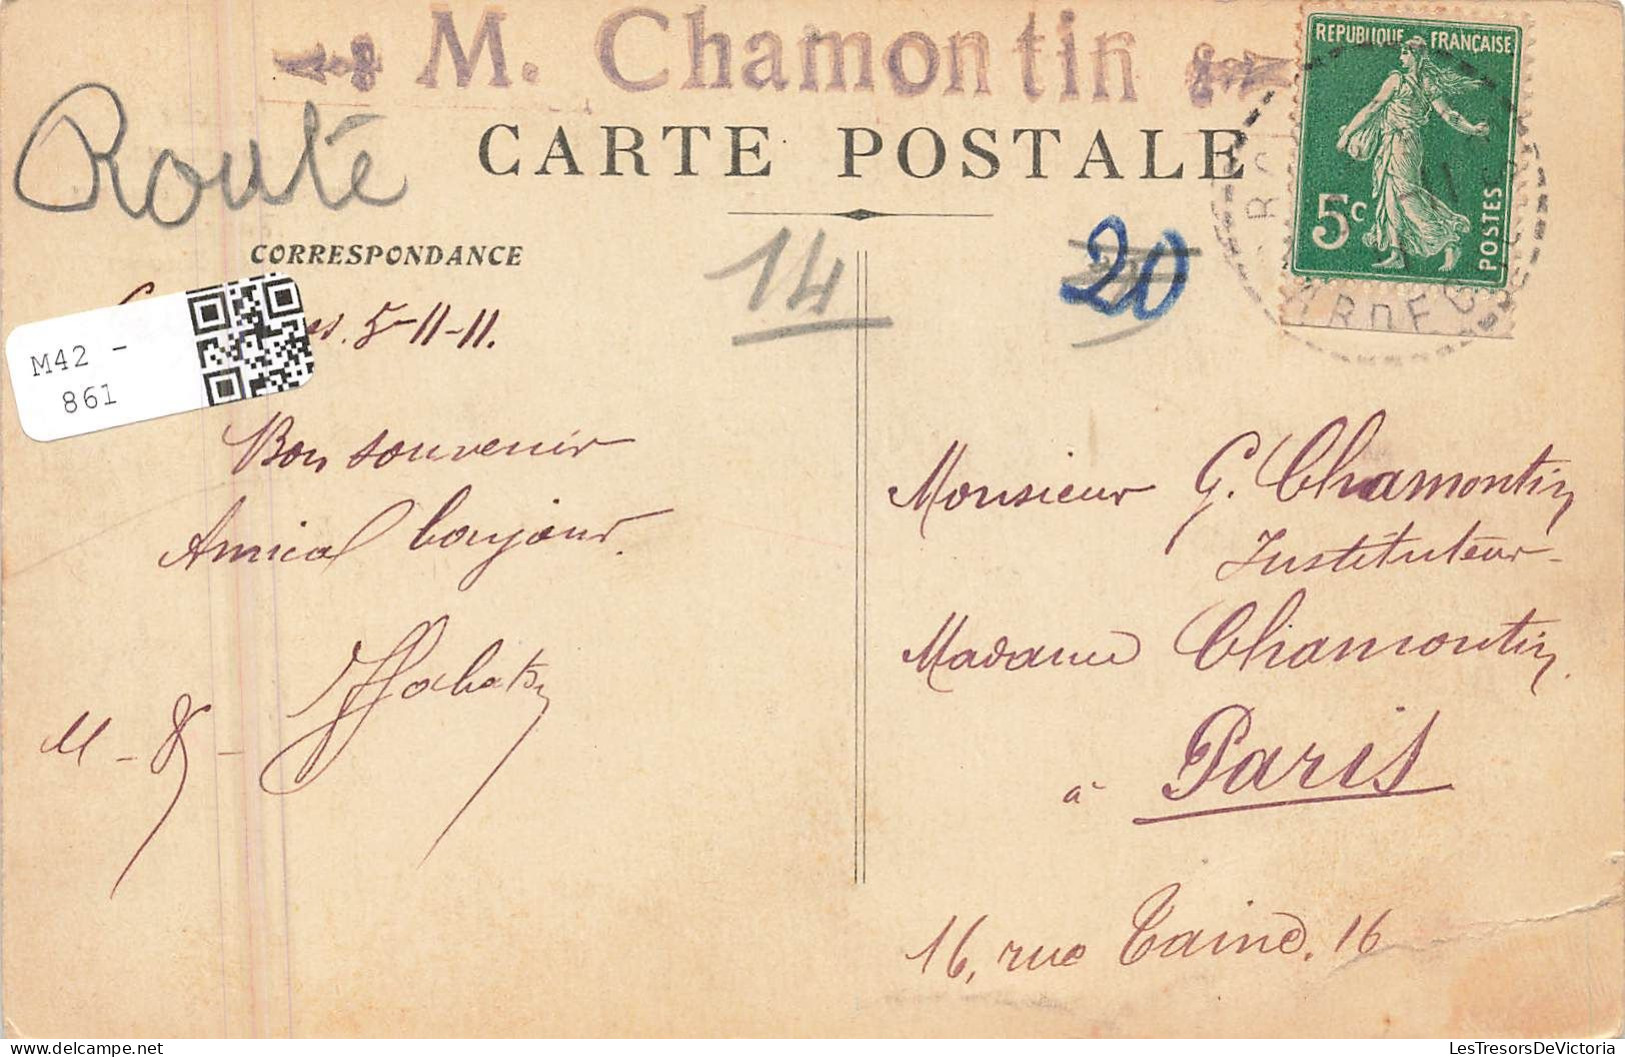 M. Chamontin
Routé
CARTE POSTALE
REPUBLIQUE FRANÇAISE
5c
POSTES
ARDEC
CORRESPONDANCE
14
20
5-11-11.
M42 -
861
Bon souvenir
Amical bonjour.
M - 8 -
Monsieur G. Chamontin
Instituteur
Madame Chamontin
à Paris
16, rue Taine. 16
LesTresorsDeVictoria